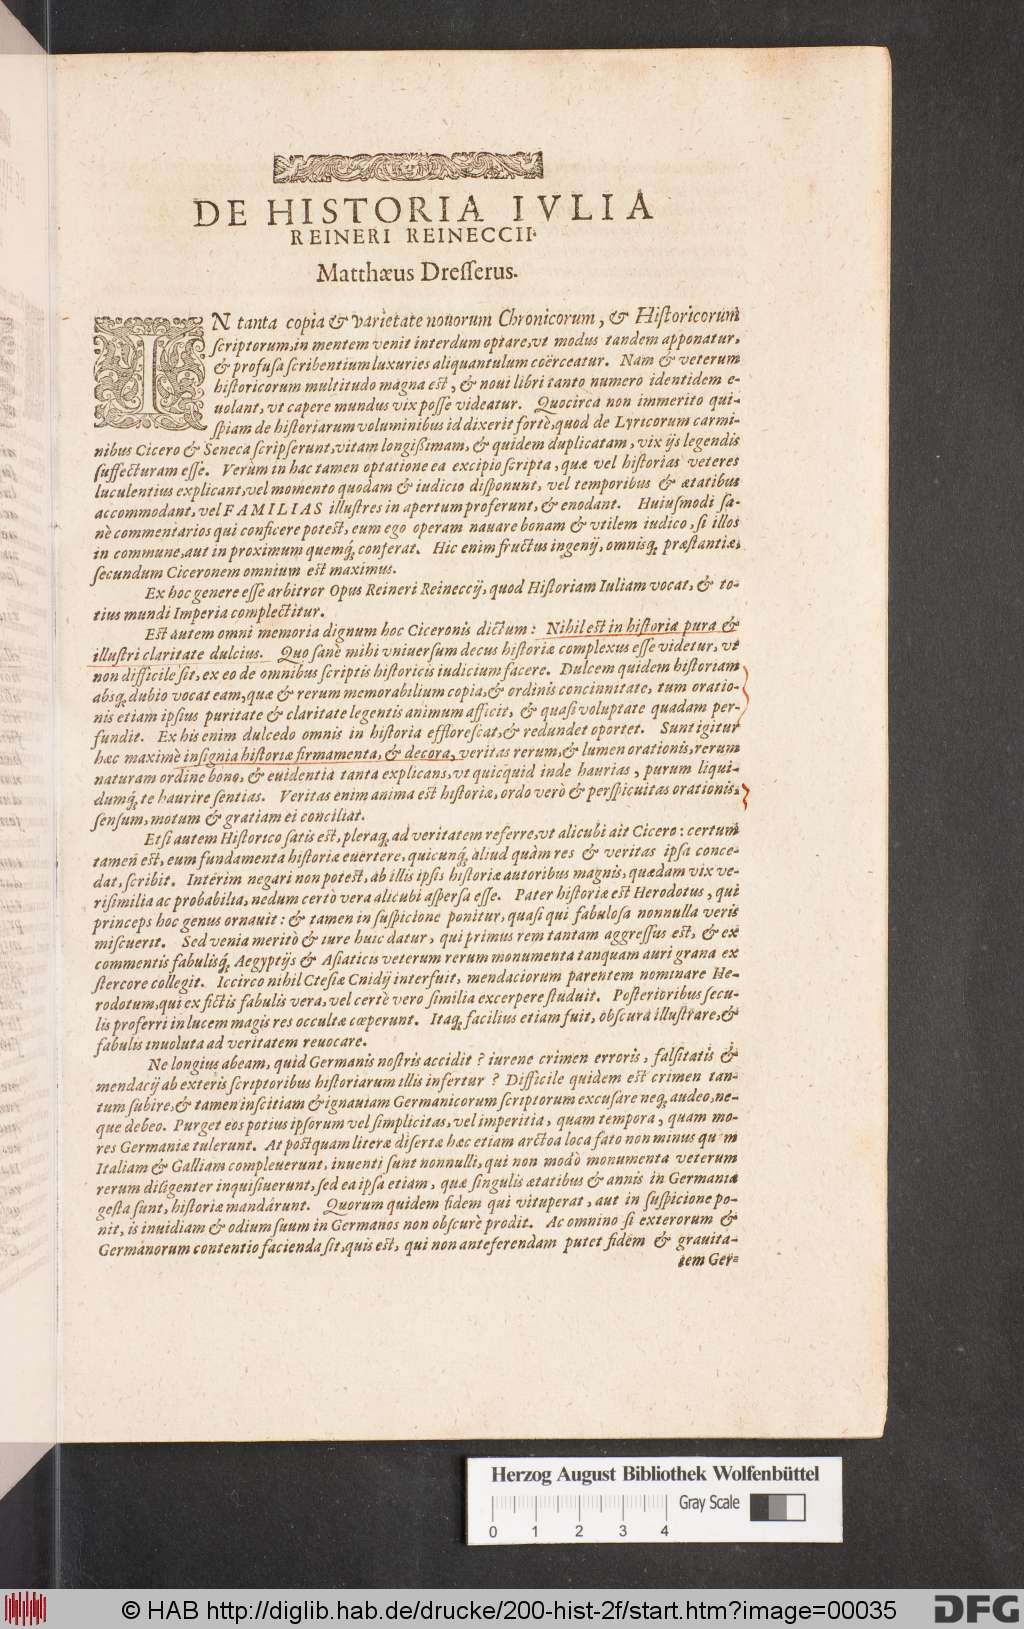 DE HISTORIA IVLIA
REINERI REINECCII.
Matthæus Dresserus.
IN tanta copia & varietate nouorum Chronicorum, & Historicorum
scriptorum, in mentem venit interdum optare, vt modus tandem apponatur,
& profusa scribentium luxuries aliquantulum coërceatur. Nam & veterum
historicorum multitudo magna est, & noui libri tanto numero identidem e-
uolant, vt capere mundus vix posse videatur. Quocirca non immerito qui-
spiam de historiarum voluminibus id dixerit fortè, quod de Lyricorum carmi-
nibus Cicero & Seneca scripserunt, vitam longißimam, & quidem duplicatam, vix ijs legendis
suffecturam esse. Verùm in hac tamen optatione ea excipio scripta, quæ vel historias veteres
luculentius explicant, vel momento quodam & iudicio disponunt, vel temporibus & ætatibus
accommodant, vel FAMILIAS illustres in apertum proferunt, & enodant. Huiusmodi sa-
nè commentarios qui conficere potest, eum ego operam nauare bonam & vtilem iudico, si illos
in commune, aut in proximum quemq́; conferat. Hic enim fructus ingenij, omnisq́; præstantiæ,
secundum Ciceronem omnium est maximus.
Ex hoc genere esse arbitror Opus Reineri Reineccij, quod Historiam Iuliam vocat, & to-
tius mundi Imperia complectitur.
Est autem omni memoria dignum hoc Ciceronis dictum: Nihil est in historia pura &
illustri claritate dulcius. Quo sanè mihi vniuersum decus historiæ complexus esse videtur, vt
non difficile sit, ex eo de omnibus scriptis historicis iudicium facere. Dulcem quidem historiam
absq́; dubio vocat eam, quæ & rerum memorabilium copia, & ordinis concinnitate, tum oratio-
nis etiam ipsius puritate & claritate legentis animum afficit, & quasi voluptate quadam per-
fundit. Ex his enim dulcedo omnis in historia efflorescat, & redundet oportet. Sunt igitur
hæc maximè insignia historiæ firmamenta, & decora, veritas rerum, & lumen orationis, rerum
naturam ordine bono, & euidentia tanta explicans, vt quicquid inde haurias, purum liqui-
dumq́; te haurire sentias. Veritas enim anima est historiæ, ordo verò & perspicuitas orationis,
sensum, motum & gratiam ei conciliat.
Etsi autem Historico satis est, pleraq́; ad veritatem referre, vt alicubi ait Cicero: certum
tamen est, eum fundamenta historiæ euertere, quicunq́; aliud quàm res & veritas ipsa conce-
dat, scribit. Interim negari non potest, ab illis ipsis historiæ autoribus magnis, quædam vix ve-
risimilia ac probabilia, nedum certò vera alicubi aspersa esse. Pater historiæ est Herodotus, qui
princeps hoc genus ornauit: & tamen in suspicione ponitur, quasi qui fabulosa nonnulla veris
miscuerit. Sed venia meritò & iure huic datur, qui primus rem tantam aggressus est, & ex
commentis fabulisq́; Aegyptijs & Asiaticis veterum rerum monumenta tanquam auri grana ex
stercore collegit. Iccirco nihil Ctesiæ Cnidij interfuit, mendaciorum parentem nominare He-
rodotum, qui ex fictis fabulis vera, vel certè vero similia excerpere studuit. Posterioribus secu-
lis proferri in lucem magis res occultæ cœperunt. Itaq́; facilius etiam fuit, obscura illustrare, &
fabulis inuoluta ad veritatem reuocare.
Ne longius abeam, quid Germanis nostris accidit? iurene crimen erroris, falsitatis &
mendacij ab exteris scriptoribus historiarum illis infertur? Difficile quidem est crimen tan-
tum subire, & tamen inscitiam & ignauiam Germanicorum scriptorum excusare neq́; audeo, ne-
que debeo. Purget eos potius ipsorum vel simplicitas, vel imperitia, quam tempora, quam mo-
res Germaniæ tulerunt. At postquam literæ disertæ hæc etiam arctoa loca fato non minus quàm
Italiam & Galliam compleuerunt, inuenti sunt nonnulli, qui non modò monumenta veterum
rerum diligenter inquisiuerunt, sed ea ipsa etiam, quæ singulis ætatibus & annis in Germania
gesta sunt, historiæ mandârunt. Quorum quidem fidem qui vituperat, aut in suspicione po-
nit, is inuidiam & odium suum in Germanos non obscurè prodit. Ac omnino si exterorum &
Germanorum contentio facienda sit, quis est, qui non anteferendam putet fidem & grauita-
tem Ger-
Herzog August Bibliothek Wolfenbüttel
Gray Scale
0 1 2 3 4
© HAB http://diglib.hab.de/drucke/200-hist-2f/start.htm?image=00035
DFG